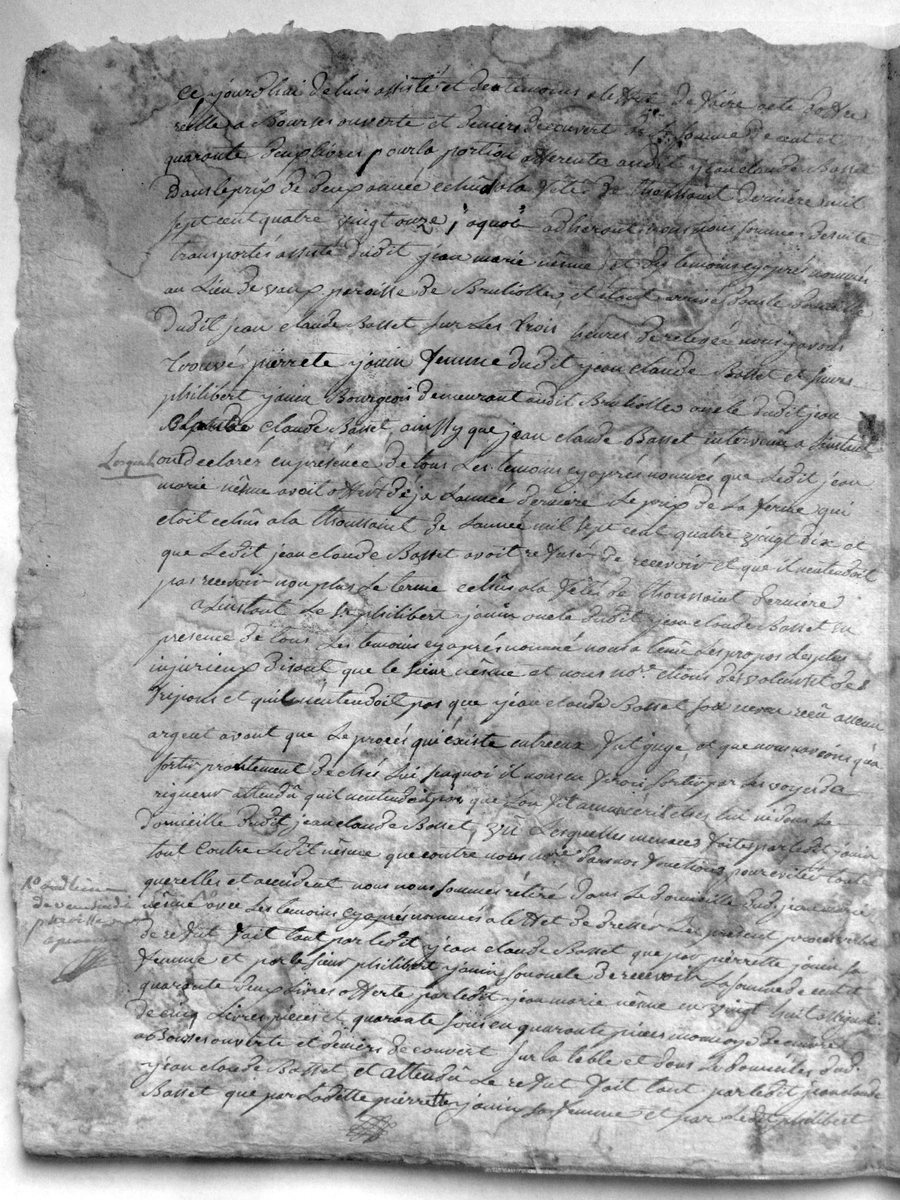 ce jourd'hui de luis assisté et des temoins a l'effet de faire acte do ffre
reelle a Bourse ouverte et deniers decouvert de la somme de cent et
quarante deux livres pour la portion afferente audit jean claude Basset
dans le prix de deux année echûe a la fête de thoussaint derniere mil
sept cent quatre vingt onze a quoi adherant nous nous sommes de suite
transportés assisté dudit jean marie nesme et des temoins cy aprés nommés
au Lieu de vaux paroisse de Brulliolles et etant arrivé dans le domicille
dudit jean claude Basset sur Les trois heures de relevée nous y avons
trouvé pierrete jouin femme dudit jean claude Basset et sieurs
philibert jouin Bourgeois demeurant audit Brulliolles oncle dudit jean
claude Basset ainssy que jean claude Basset intervenû a Linstant
Lesquels
on declarér en présence de tous Les temoins cy aprés nommés que Ledit jean
marie nésme avoit offert déja L'année derniere Le prix de La ferme qui
etoit echûs a la thoussaint de Lannée mil sept cent quatre vingt dix et
que Ledit jean claude Basset avoit refusé de recevoir et que il nentendoit
pas recevoir non plus Le terme echûs a la fête de thoussaint derniere
a Linstant Le sr philibert jouin oncle dudit jean claude Basset en
presence de tous Les temoins cy aprés nommé nous a tenû des propos Les plus
injurieux disant que le sieur nésme et nous nore. etions des voleurs et des
fripons et quil n'entendoit pas que jean claude Basset son neveu reçû aucun
argent avant que Le procés qui existe entreeux fut jugé et que nous navions qu'a
sortir promtement de chés Lui pas quoi il nous en feroit sortir par Les voyes de
rigueur attendû quil nentendoit pas que L'on fit aucun ecrit chés lui ni dans Le
domicille dudit jean claude Basset, vû Lesquelles menaces faites par ledit jouin
tout contre Ledit nésme que contre nous nore. dans nos fonctions, pour evités tout
querelles et accident nous nous sommes rétiré dans Le domicille dudit jean marie
nésme avec Les temoins cy aprés nommés a leffet de dressér Le present procés verbal
Ro audit lieu
de vaux susdite
paroisse
de refut fait tant par ledit jean claude Basset que par pierrette jouin sa
femme et par le sieur philibert jouin son oncle de recevoir La somme de cent et
quarante deux Livres offerte par ledit jean marie nésme en vingt huit assignats
de cinq Livres pieces et quarante sous en quarante pieces monnoye de cuivre
a Bourse ouverte et déniers decouvert sur la table et dans Le domicille dud.
jean claude Basset et attendû Le refut fait tant par ledit jean claude
Basset que par Ladette pierrette jouin sa femme et par Ledit philibert